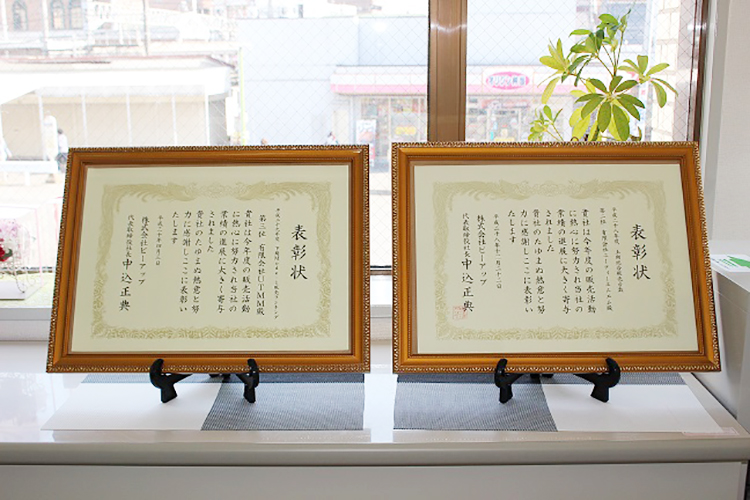 表彰状
第三位 有限会社UTMM殿
貴社は今年度の販売活動
に熱心に努力され当社の
業績の進展に大きく寄与
されました
貴社のたゆまぬ熱意と努
力に感謝しここに表彰い
たします
平成三十年四月八日
株式会社ピーアップ
代表取締役社長 中込正典
表彰状
平成二十八年度
有限会社 殿
貴社は今年度の販売活動
に熱心に努力され当社の
業績の進展に大きく寄与
されました
貴社のたゆまぬ熱意と努
力に感謝しここに表彰い
たします
株式会社ピーアップ
代表取締役社長 中込正典